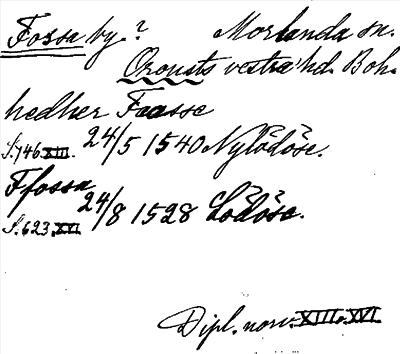 Fossa by.? Morlanda sn.
Orousts vestra hd. Boh.
hedher Faasse
S. 746 XIII. 24/5 1540 Nylödöse.
Ffossa
S. 623 XVI. 24/8 1528 Lödöse.
Dipl. norv. XIII. XVI.